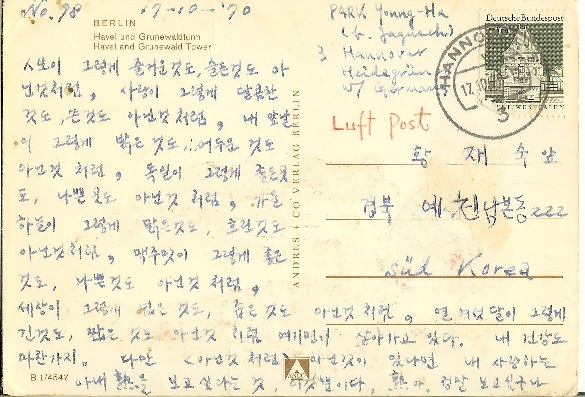 No. 98 17-10-'70
BERLIN
Havel und Grunewaldturm
Havel and Grunewald Tower
인생이 그렇게 즐거운것도, 슬픈것도 아
닌것처럼, 사랑이 그렇게 달콤한
것도, 쓴것도 아닌것처럼, 내 앞날
이 그렇게 밝은 것도, 어두운 것도
아닌것 처럼, 독일이 그렇게 좋은곳
도, 나쁜곳도 아닌것 처럼, 가을
하늘이 그렇게 맑은것도, 흐린것도
아닌것처럼, 맥주맛이 그렇게 좋은
것도, 나쁜것도 아닌것 처럼,
세상이 그렇게 넓은 것도, 좁은 것도 아닌것 처럼, 열 여덟달이 그렇게
긴것도, 짧은 것도 아닌것 처럼 여기면서 살아가고 있다. 내 건강도
마찬가지. 다만 <아닌것 처럼> 아닌것이 있다면 내 사랑하는
아내 熱을 보고 싶다는 것, 이것뿐이다. 熱아, 정말 보고싶구나
B 1/4647
ANDRES + CO VERLAG BERLIN
PARK Young-Ha
3 Hannover
W/ Germany
Deutsche Bundespost
HANNOVER
17.10.70
3
Luft Post
황 재 숙 앞
경북 예천 남본동 222
Süd Korea